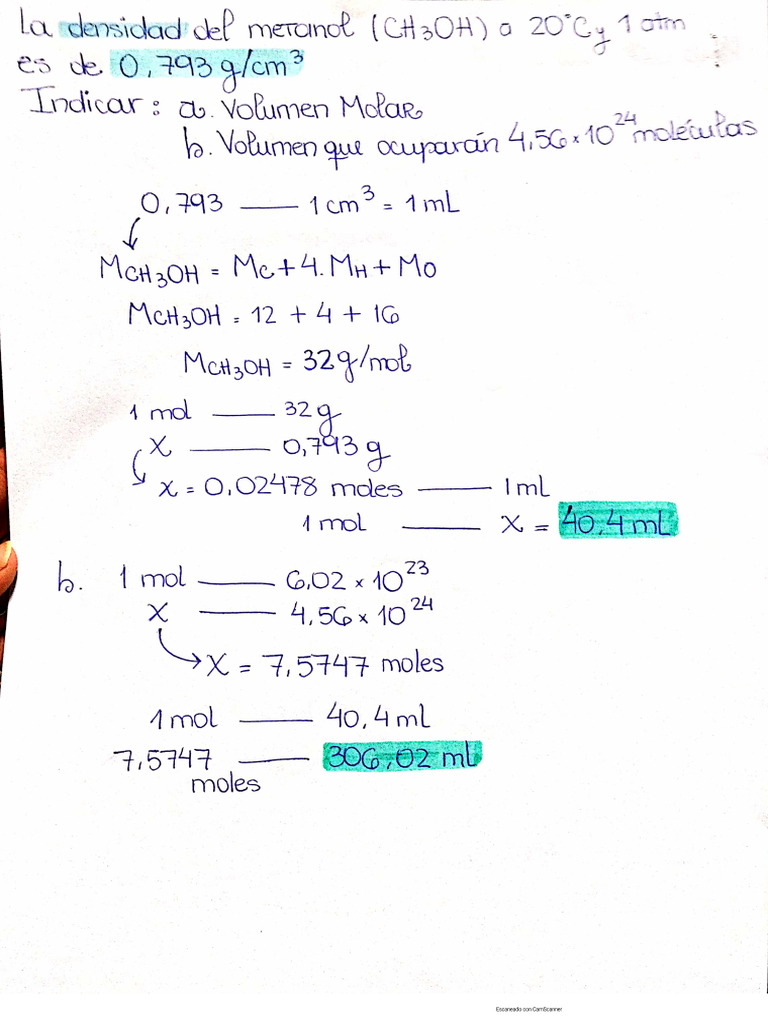 La densidad del metanol (CH3OH) a 20°C y 1 atm
es de 0,793 g/cm³
Indicar: a. Volumen Molar
b. Volumen que ocuparán 4,56 × 10²⁴ moléculas
0,793 — 1 cm³ = 1 mL
MCH3OH = Mc + 4. MH + MO
MCH3OH = 12 + 4 + 16
MCH3OH = 32g/mol
1 mol — 32 g
X — 0,793 g
X = 0,02478 moles — 1 ml
1 mol — X = 40,4 mL
b. 1 mol — 6,02 × 10²³
X — 4,56 × 10²⁴
X = 7,5747 moles
1 mol — 40,4 ml
7,5747 — 306,02 ml
moles
Escaneado con CamScanner